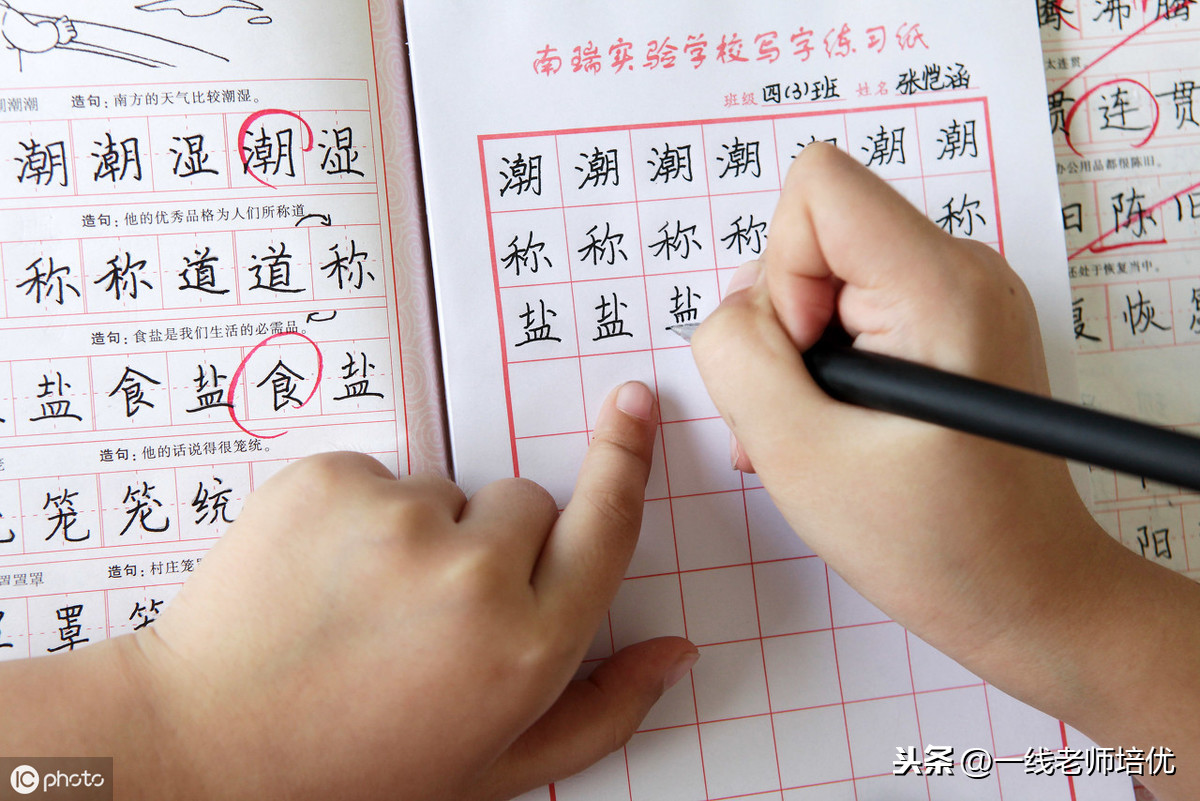 潮潮 造句：南方的天气比较潮湿。
潮 潮 湿 潮 湿
造句：他的优秀品格为人们所称道
称 称 道 道 称
造句：食盐是我们生活的必需品。
盐 食 盐 食 盐
造句：他的话说得很笼统。
笼 笼 统
置置罩 造句：村庄笼
罩
南瑞实验学校写字练习纸
班级 四(3)班 姓名 张恺涵
潮 潮 潮 潮 潮 潮 潮
称 称 称 称 称
盐 盐 盐
沸腾
太连贯
贯 连 贯
办公用品都很陈旧。
旧 陈 旧
还处于恢复当中。
复 恢
阳
IC photo
头条 @一线老师培优